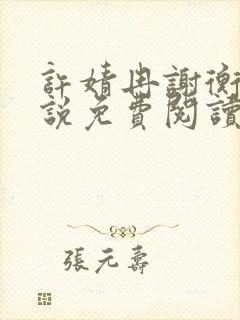 許婧冉謝衡
說免費閱讀
張元壽